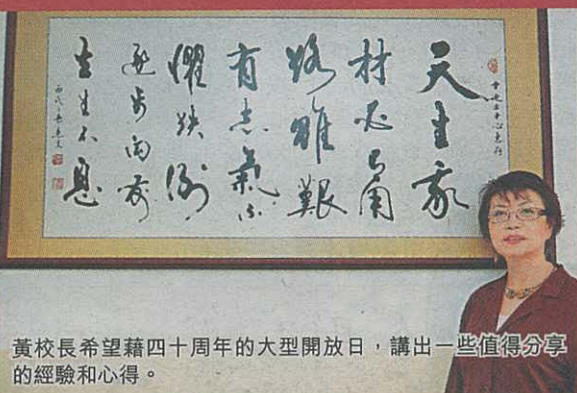 天生我
材必有用
路雖艱
有志氣不
懼跌倒
逐步向前
生生不息
黃校長希望藉四十周年的大型開放日,講出一些值得分享
的經驗和心得。